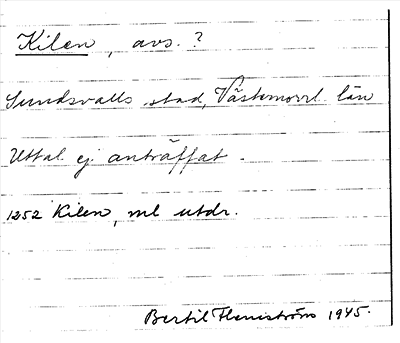 Kilen, avs. ?
Sundsvalls stad, Västernorrl. län
Uttal ej anträffat.
1252 Kilen, ml utdr.
Bertil Flemström 1945.